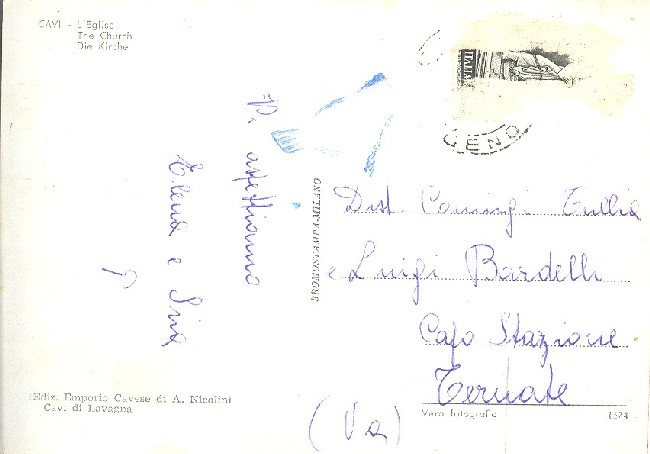 CAVI - L'Eglise
The Church
Die Kirche
GENO
Vi aspettiamo
Elena e
BROMOSTAMPA-MILANO
Dist. Coniugi Tullia
e Luigi Bardelli
Capo Stazione
Ternate
(Va)
Ediz. Emporio Cavese di A. Nicolini
Cav. di Lavagna
Vera fotografia